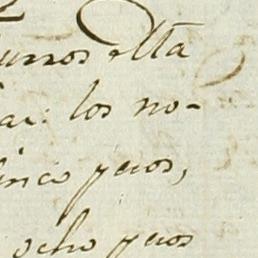 urros esta
ar: los no-
inco pesos,
ocho pesos